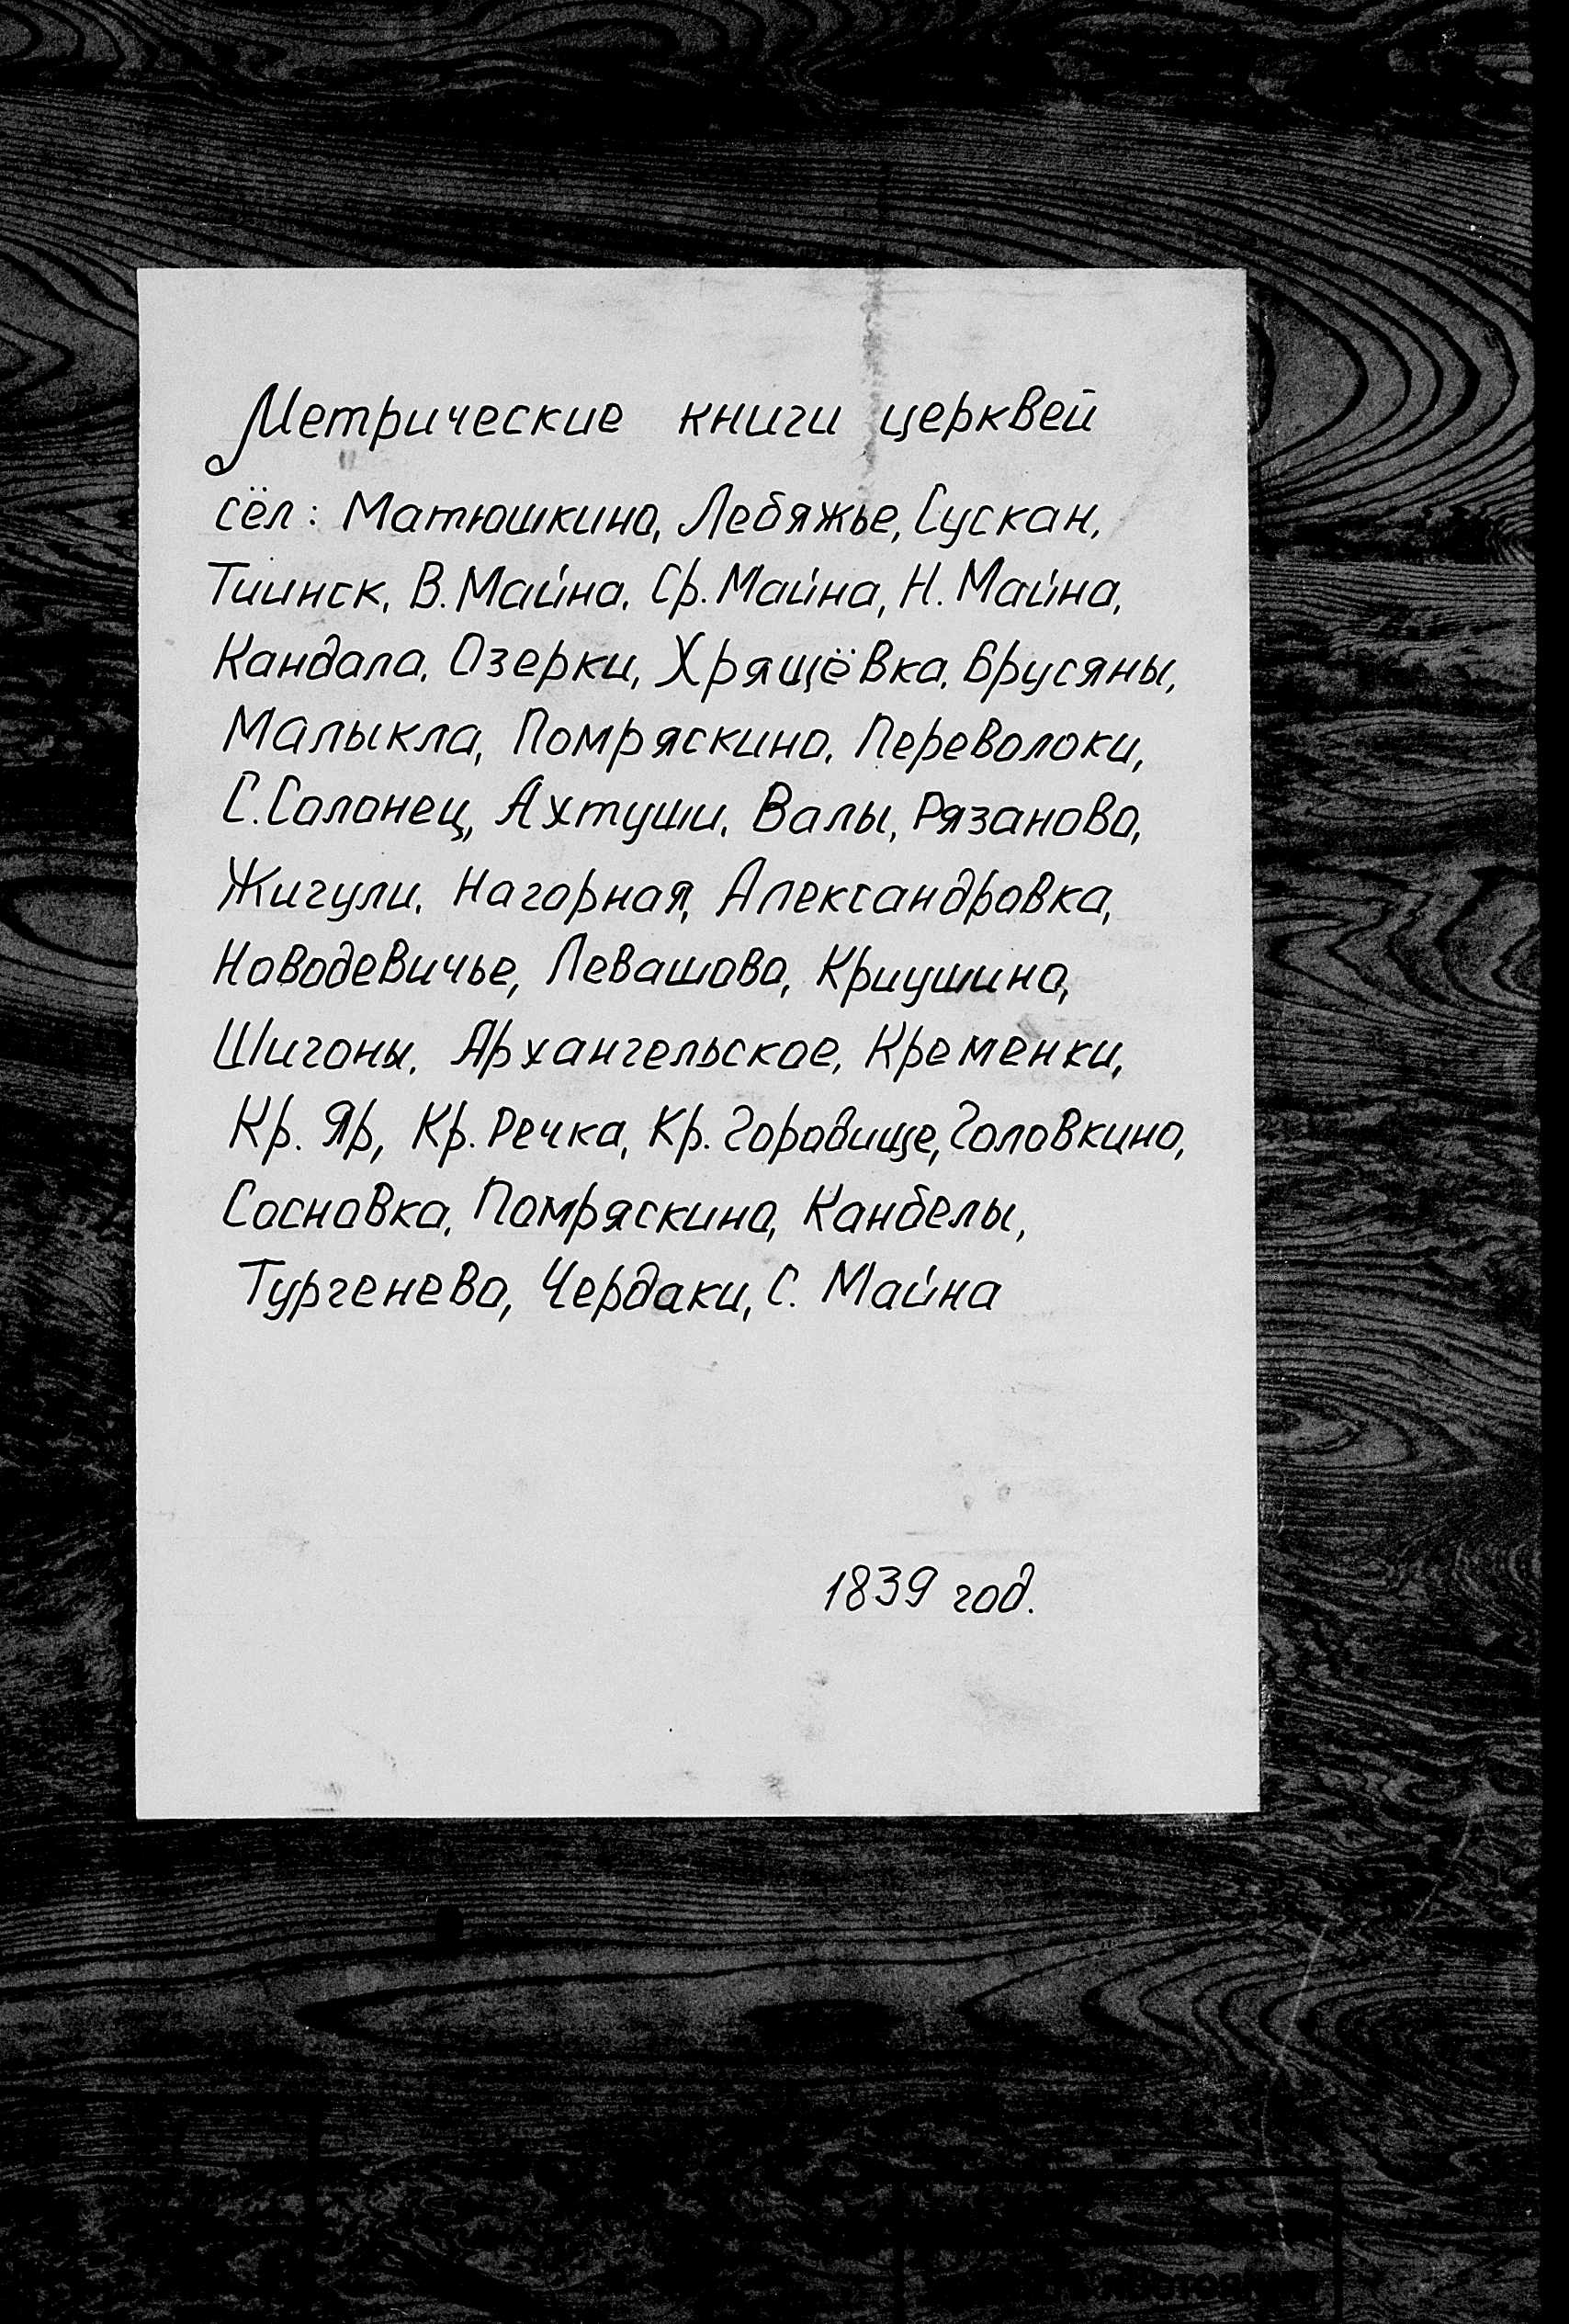 Метрические книги церквей
сёл: Матюшкино, Лебяжье, Сускан,
Тиинск, В. Майна, Ср. Майна, Н. Майна,
Кандала, Озерки, Хрящёвка, Брусяны,
Малыкла, Помряскино, Переволоки,
С. Солонец, Ахтуши, Валы, Рязаново,
Жигули, Нагорная, Александровка,
Новодевичье, Левашово, Криушино,
Шигоны, Архангельское, Кременки,
Кр. Яр, Кр. Речка, Кр. Городище, Головкино,
Сосновка, Помряскино, Канбелы,
Тургенево, Чердаки, С. Майна
1839 год.